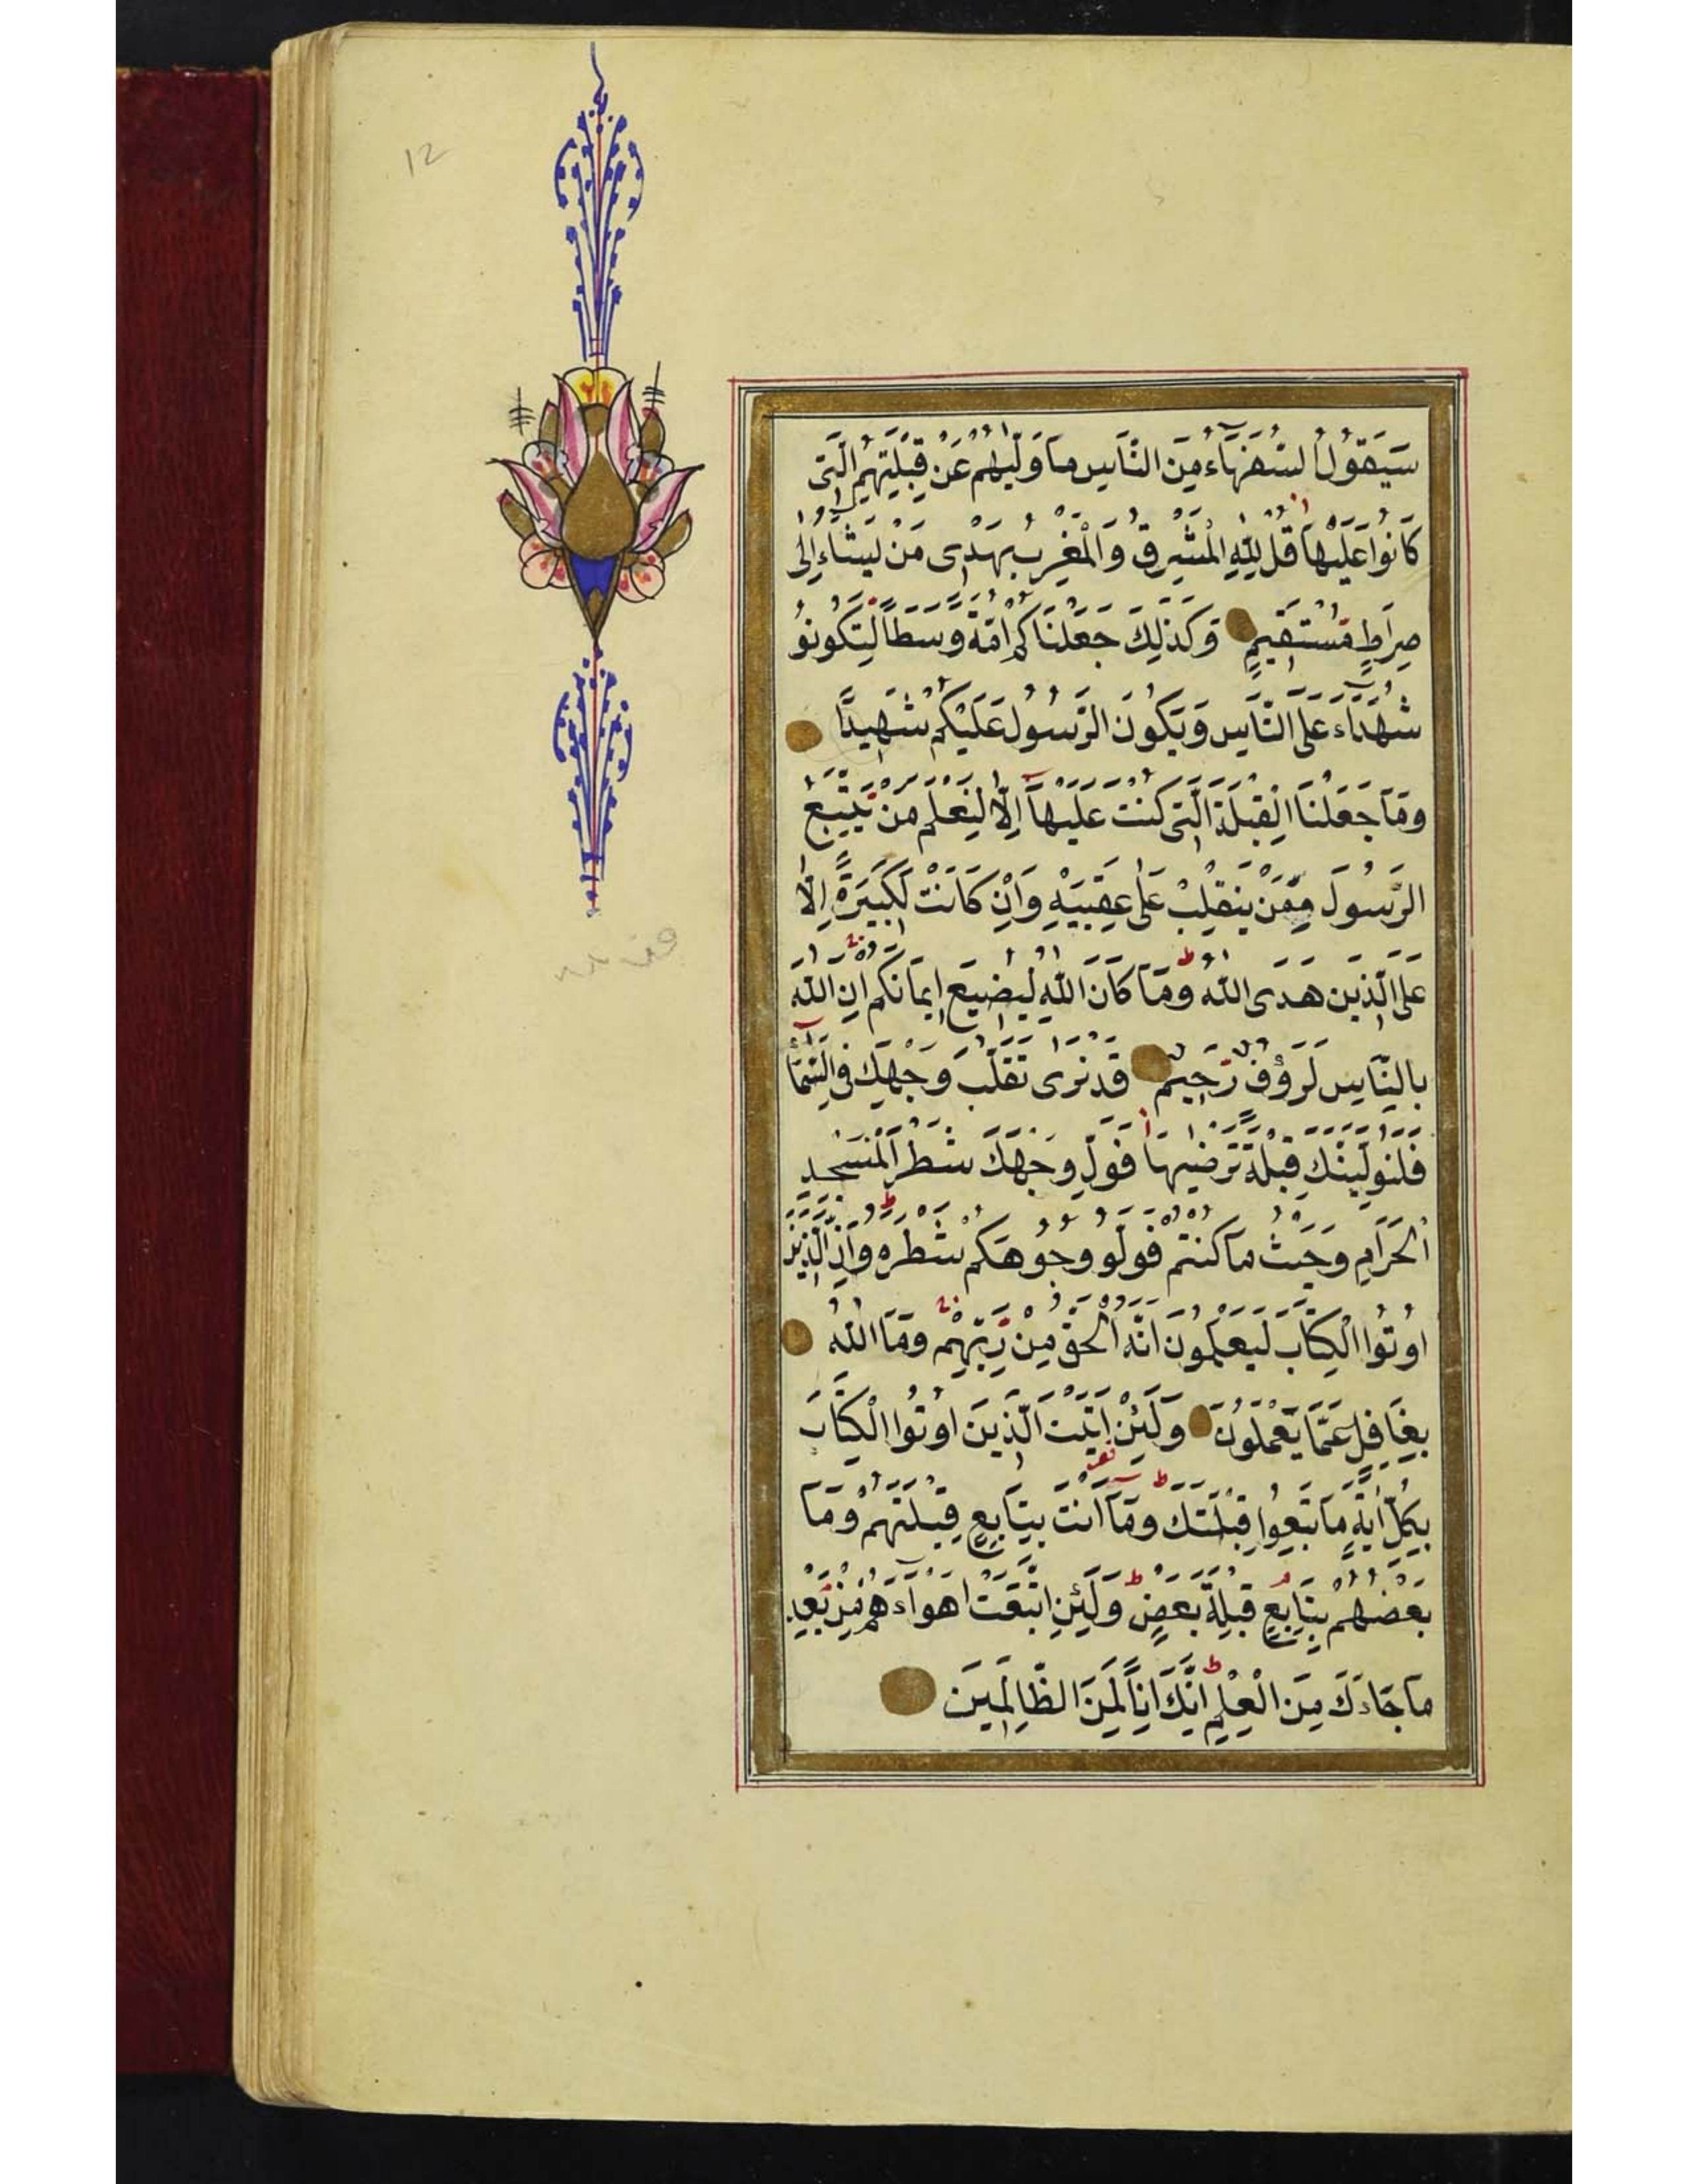 12
سَيَقُولُ السُّفَهَاءُ مِنَ النَّاسِ مَا وَلّٰيهُمْ عَنْ قِبْلَتِهِمُ الَّتِى
كَانُوا عَلَيْهَا قُلْ لِلّٰهِ الْمَشْرِقُ وَالْمَغْرِبُ يَهْدِى مَنْ يَشَاءُ اِلٰى
صِرَاطٍ مُسْتَقِيمٍ وَكَذٰلِكَ جَعَلْنَاكُمْ اُمَّةً وَسَطًا لِتَكُونُو
شُهَدَاءَ عَلَى النَّاسِ وَيَكُونَ الرَّسُولُ عَلَيْكُمْ شَهِيدًا
وَمَا جَعَلْنَا الْقِبْلَةَ الَّتِى كُنْتَ عَلَيْهَا اِلَّا لِنَعْلَمَ مَنْ يَتَّبِعُ
الرَّسُولَ مِمَّنْ يَنْقَلِبُ عَلٰى عَقِبَيْهِ وَاِنْ كَانَتْ لَكَبِيرَةً اِلَّا
عَلَى الَّذِينَ هَدَى اللّٰهُ وَمَا كَانَ اللّٰهُ لِيُضِيعَ اِيمَانَكُمْ اِنَّ اللّٰهَ
بِالنَّاسِ لَرَؤُفٌ رَحِيمٌ قَدْ نَرٰى تَقَلُّبَ وَجْهِكَ فِى السَّمَآ
فَلَنُوَلِّيَنَّكَ قِبْلَةً تَرْضٰيهَا فَوَلِّ وَجْهَكَ شَطْرَ الْمَسْجِدِ
الْحَرَامِ وَحَيْثُ مَا كُنْتُمْ فَوَلُّو وُجُوهَكُمْ شَطْرَهُ وَاِنَّ الَّذِينَ
اُوتُوا الْكِتَابَ لَيَعْلَمُونَ اَنَّهُ الْحَقُّ مِنْ رَبِّهِمْ وَمَا اللّٰهُ
بِغَافِلٍ عَمَّا يَعْمَلُونَ وَلَئِنْ اَتَيْتَ الَّذِينَ اُوتُوا الْكِتَابَ
بِكُلِّ اٰيَةٍ مَا تَبِعُوا قِبْلَتَكَ وَمَا اَنْتَ بِتَابِعٍ قِبْلَتَهُمْ وَمَا
بَعْضُهُمْ بِتَابِعٍ قِبْلَةَ بَعْضٍ وَلَئِنِ اتَّبَعْتَ اَهْوَاءَهُمْ مِنْ بَعْدِ
مَا جَاءَكَ مِنَ الْعِلْمِ اِنَّكَ اِذًا لَمِنَ الظَّالِمِينَ